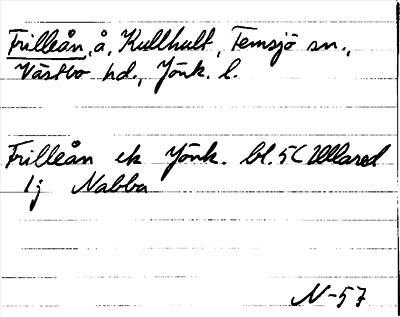 Frilleån, å, Kullhult, Femsjö sn.,
Västbo hd., Jönk. l.
Frilleån ek Jönk. bl. 5 (Ullared
1j Nabba
N-57